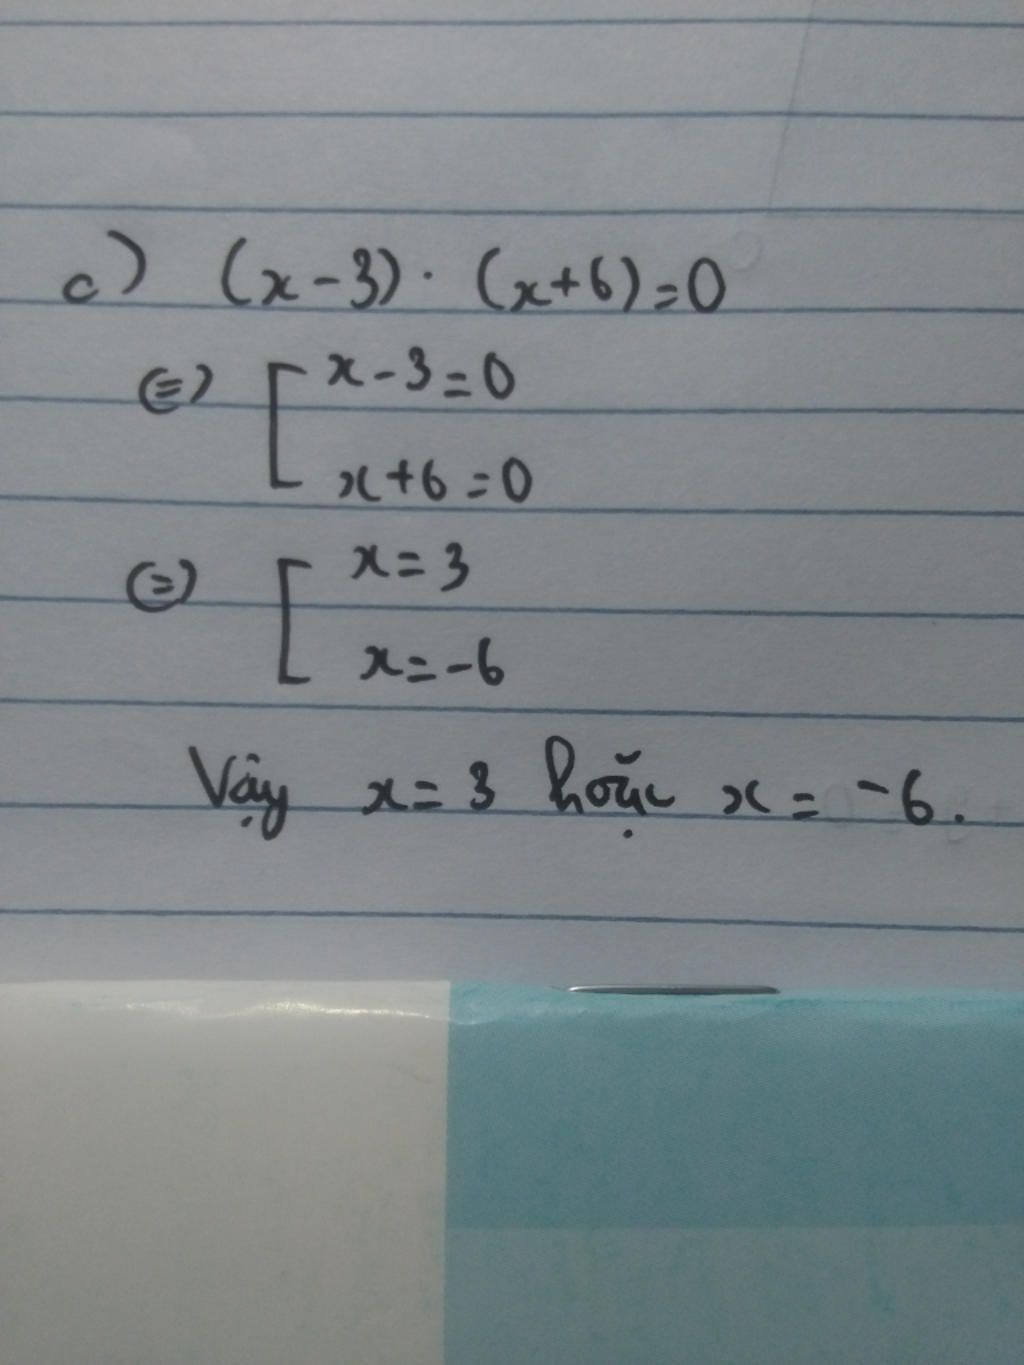 c) (x-3).(x+6)=0
(=) [ x-3=0
x+6=0
(=) [ x=3
x=-6
Vậy x=3 hoặc x=-6.